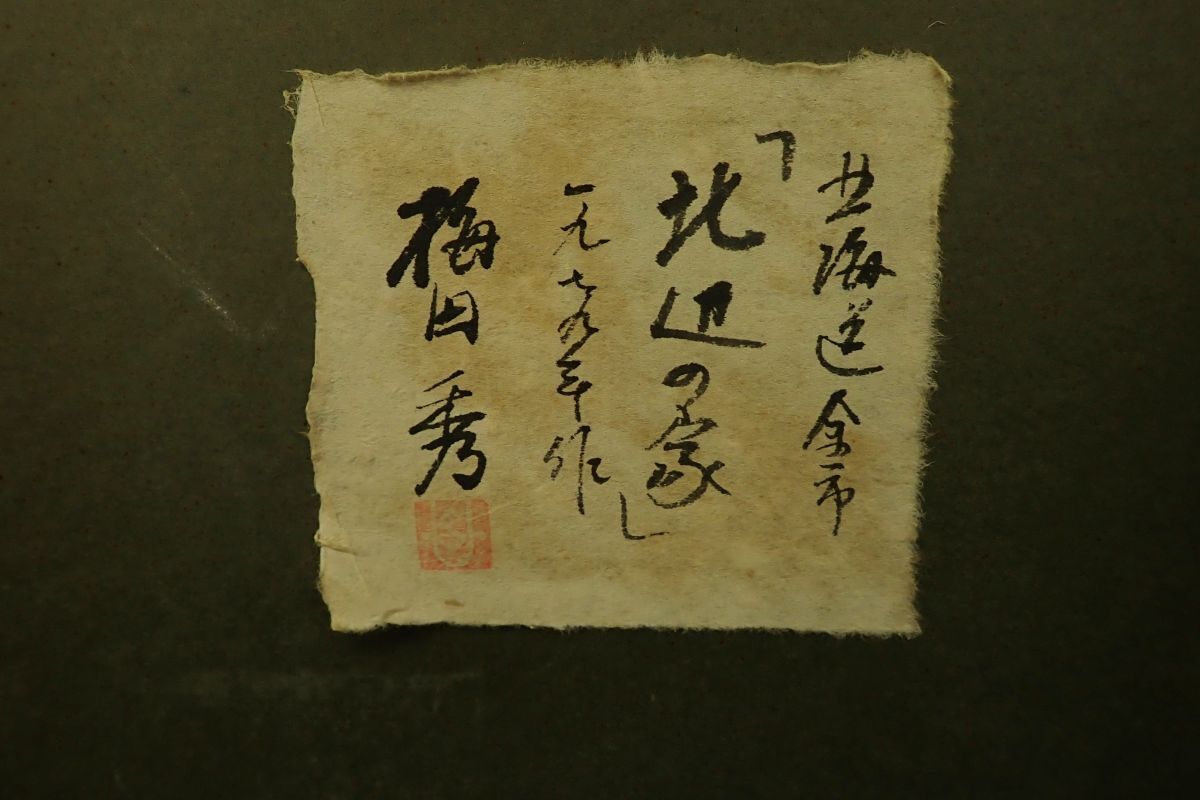 北海道余市
「北辺の家」
一九七九年作
梅田秀